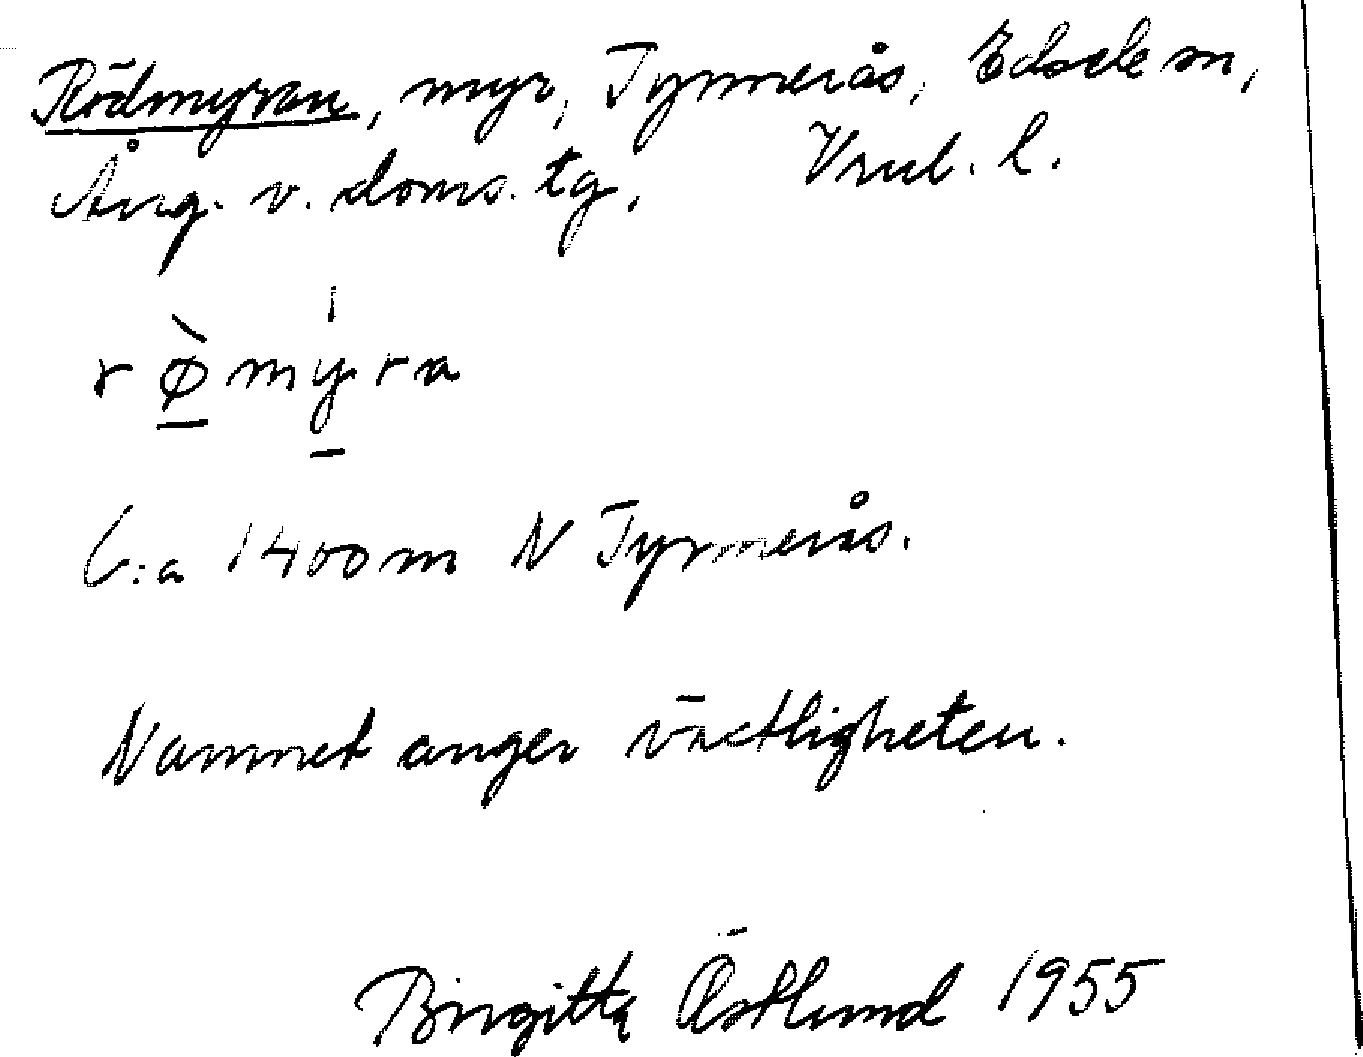 Rödmyran, myr, Tyrmerås, Edsele sn,
Ång. v. doms. tg. Vnul. l.
rø̀mýra
C:a 1400 m N Tyrmerås.
Namnet anger växtligheten.
Birgitta Östlund 1955